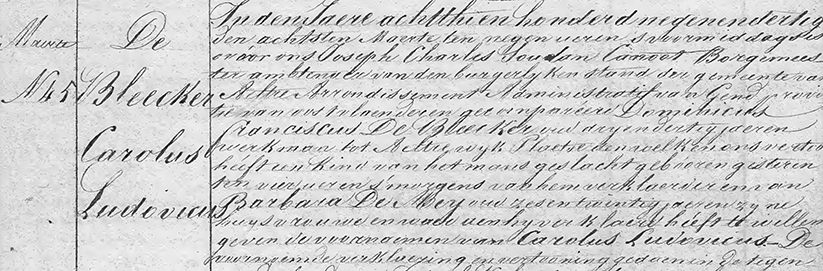 Maerte
N 45
De
Bleecker
Carolus
Ludovicus
In den Jaere achtthien honderd negenendertig
den achtsten Maerte ten negen ueren s'voormiddags is
voor ons Joseph Charles Soudan Canoot Borgemees
ter ambtenaer van den burgerlyken stand der gemeente van
Aeltre Arrondissement Administratif van Gend provin
tie van oostvlaenderen gecompareerd Dominicus
Franciscus De Bleecker oud dryendertig jaeren
werkman tot Aeltre wyk Plaetse den welken ons vertoo
heeft een kind van het mans geslacht geboren gisteren
ten vier ueren s'morgens van hem verklaerder en van
Barbara De Mey oud zesentwintig jaeren zyne
huysvrouwe en waer aen hy verklaert heeft te willen
geven de voornaemen van Carolus Ludovicus De
voornoemde verklaering en vertooning gedaen in de tegen